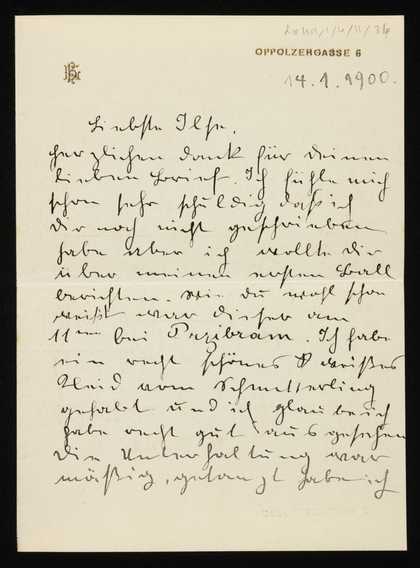 OPPOLZERGASSE 6
14.1.1900.
Liebste Ilse,
herzlichen dank für deinen
lieben Brief. Ich fühle mich
schon sehr schuldig daß ich
dir noch nicht geschrieben
habe aber ich wollte dir
über meinen ersten Ball
berichten. Wie du wohl schon
weißt war dieser am
11ten bei Przibram. Ich habe
ein recht schönes weißes
Kleid vom Schmetterling
gehabt und ich glaube ich
habe recht gut ausgesehen
die Unterhaltung war
mäßig, getanzt habe ich